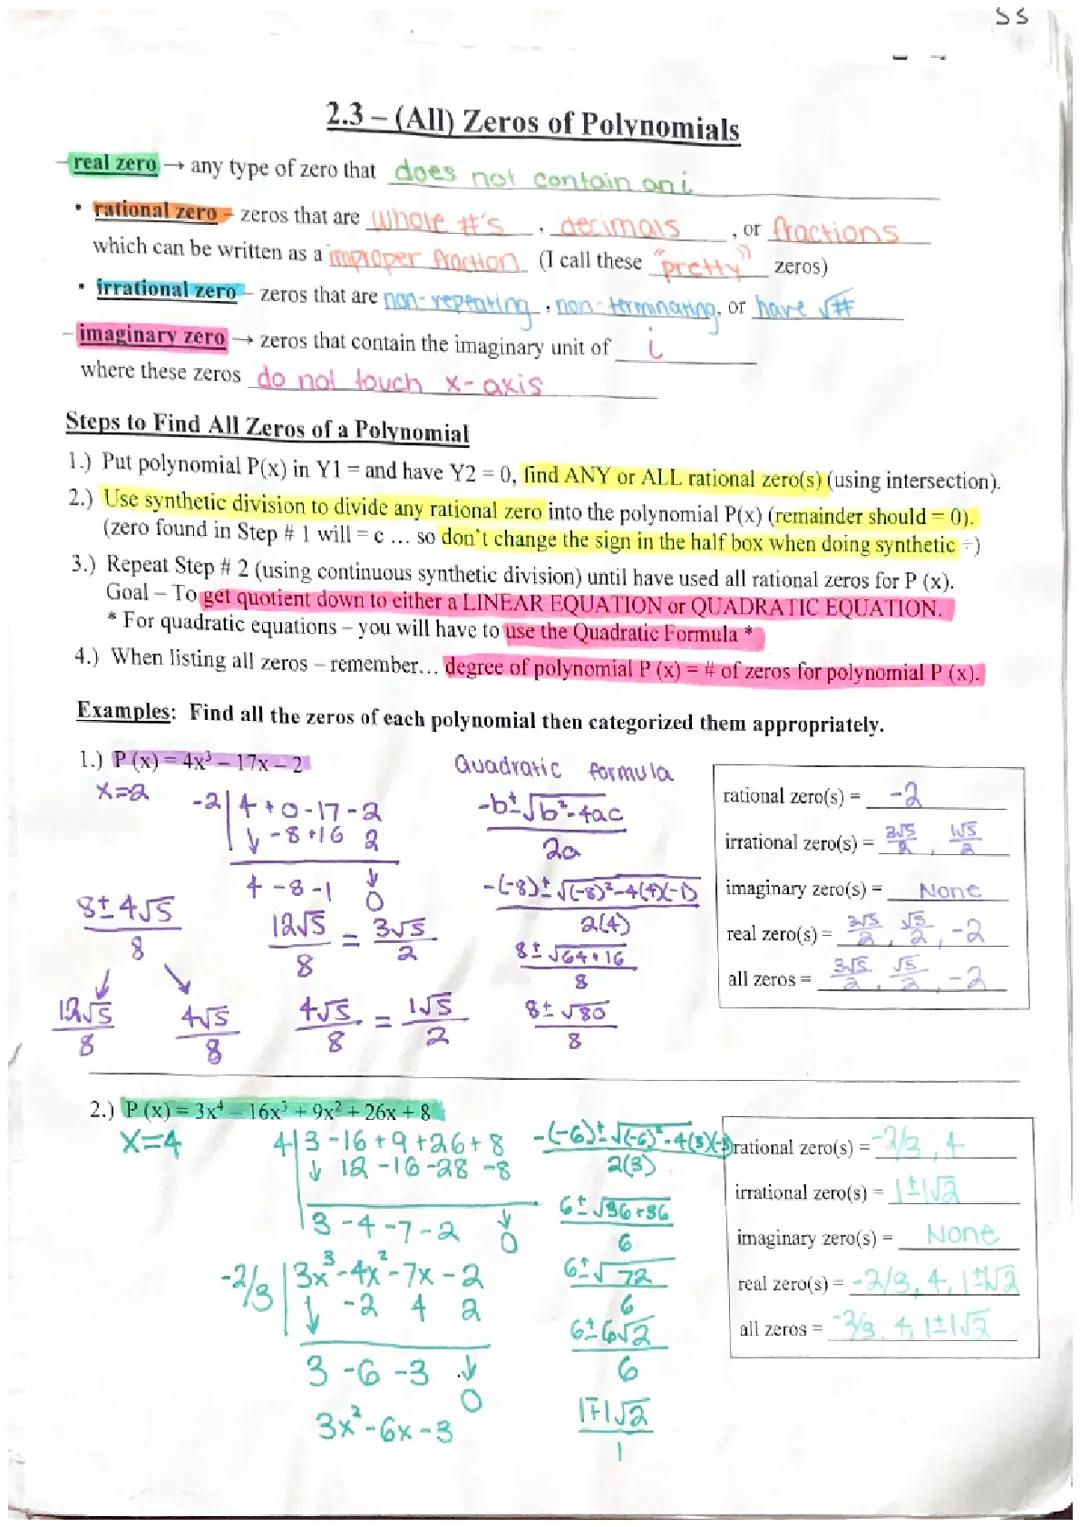 SS
2.3 – (All) Zeros of Polynomials
real zero → any type of zero that does not contain an i
• rational zero – zeros that are whole #'s, decimals, or fractions
which can be written as a improper fraction (I call these "pretty" zeros)
• irrational zero – zeros that are non-repeating, non-terminating, or have √#
imaginary zero → zeros that contain the imaginary unit of i
where these zeros do not touch x-axis
Steps to Find All Zeros of a Polynomial
1.) Put polynomial P(x) in Y1 = and have Y2 = 0, find ANY or ALL rational zero(s) (using intersection).
2.) Use synthetic division to divide any rational zero into the polynomial P(x) (remainder should = 0).
(zero found in Step # 1 will = c ... so don't change the sign in the half box when doing synthetic ÷)
3.) Repeat Step # 2 (using continuous synthetic division) until have used all rational zeros for P (x).
Goal – To get quotient down to either a LINEAR EQUATION or QUADRATIC EQUATION.
* For quadratic equations – you will have to use the Quadratic Formula *
4.) When listing all zeros – remember... degree of polynomial P (x) = # of zeros for polynomial P (x).
Examples: Find all the zeros of each polynomial then categorized them appropriately.
1.) P (x) = 4x³ – 17x – 2
x=2
-2| 4 + 0 - 17 - 2
↓ -8 +16 2
4 -8 -1 0
8 ± 4√5
8
12√5
8
4√5
8
12√5 = 3√5
8 2
4√5 = 1√5
8 2
Quadratic formula
-b ± √b²-4ac
2a
-(-8) ± √(-8)²-4(4)(-1)
2(4)
8 ± √64+16
8
8 ± √80
8
rational zero(s) = -2
irrational zero(s) = 3√5/2, 1√5/2
imaginary zero(s) = None
real zero(s) = 3√5/2, √5/2, -2
all zeros = 3√5/2, √5/2, -2
2.) P (x) = 3x⁴ – 16x³ + 9x² + 26x + 8
x=4
4| 3 -16 +9 +26 +8
↓ 12 -16 -28 -8
3 -4 -7 -2 0
-2/3 | 3x³-4x²-7x-2
↓ -2 4 2
3 -6 -3 0
3x²-6x-3
-(-6) ± √(-6)²-4(3)(-3)
2(3)
6 ± √36+36
6
6 ± √72
6
6 ± 6√2
6
1∓1√2
1
rational zero(s) = -2/3, 4
irrational zero(s) = 1±1√2
imaginary zero(s) = None
real zero(s) = -2/3, 4, 1±1√2
all zeros = -2/3, 4, 1±1√2